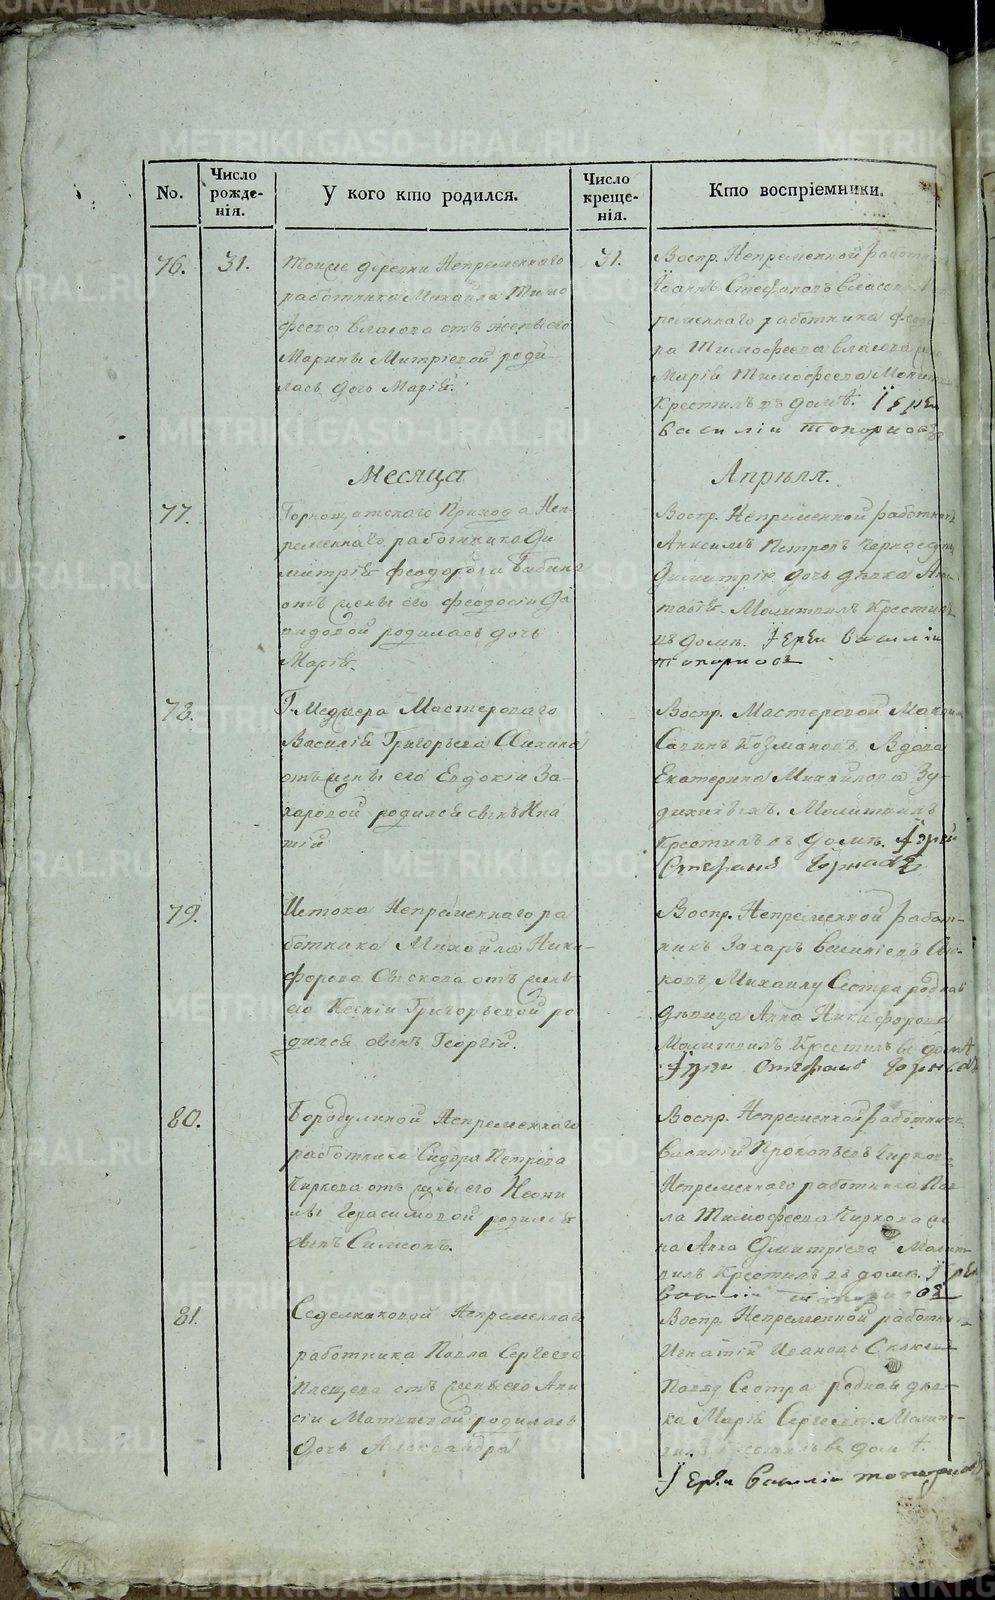 METRIKI.GASO-URAL.RU
No.
Число рожде-нія.
У кого кто родился.
Число креще-нія.
Кто воспріемники.
76.
31.
тойже деревни Непременнаго
работника Михайла Тимо
феева Власова отъ жены его
Марины Митріевой роди
лась дочь Марія.
31.
Воспр. Непременной работн
Іоаннъ Стефановъ Власовъ
ременнаго работника Ѳедо
ра Тимофеева Власова
Марія Тимофеева Молит
Крестилъ въ домѣ. Іерей
Василіи Топорковъ
Месяца
Апрѣля.
77.
Горнощитскаго Прихода Неп
ременнаго работника Ди
митрія Феодорова Бабина
отъ жены его Феодосіи Да
видовой родилась дочь
Марія.
Воспр. Непременной работникъ
Анисимъ Петровъ
Димитрію дочь девка Анас
тасія. Молитвилъ Крестилъ
въ домѣ. Іерей Василіи
Топорковъ
78.
Мастероваго
Василія Григорьева
отъ жены его Евдокіи За
харовой родился сынъ Ипа
тій
Воспр. Мастеровой
Вдова
Екатерина Михайлова
Молитвилъ
Крестилъ въ домѣ. Іерей
Стефанъ
79.
Истока Непременнаго ра
ботника Михайла Ники-
форова Сыскова отъ жены
его Ксеніи Григорьевой ро
дился сынъ Георгій.
Воспр. Непременной работ-
никъ Захаръ Сыс-
ковъ Михаилу Сестра родная
девица Анна Никифорова
Молитвилъ Крестилъ въ домѣ
Іерей Стефанъ
80.
Бородулиной Непременнаго
работника Сидора Петрова
Чиркова отъ жены его Неони
лы Герасимовой родился
сынъ Симеонъ.
Воспр. Непременной работникъ
Василій Прокопьевъ Чирковъ
Непременнаго работника Пав
ла Тимофеева Чиркова же
на Анна Дмитріева Молит
вилъ Крестилъ въ домѣ. Іерей
Василіи Топорковъ
81.
Седельниковой Непременнаго
работника Павла Сергеева
Плещева отъ жены его Ани
сіи Матвеевой родилась
дочь Александра
Воспр. Непременной работни-
Игнатій Ивановъ
Павлу Сестра родная дев
ка Марія Сергеева. Молит-
вилъ Крестилъ въ домѣ.
Іерей Василіи Топорковъ